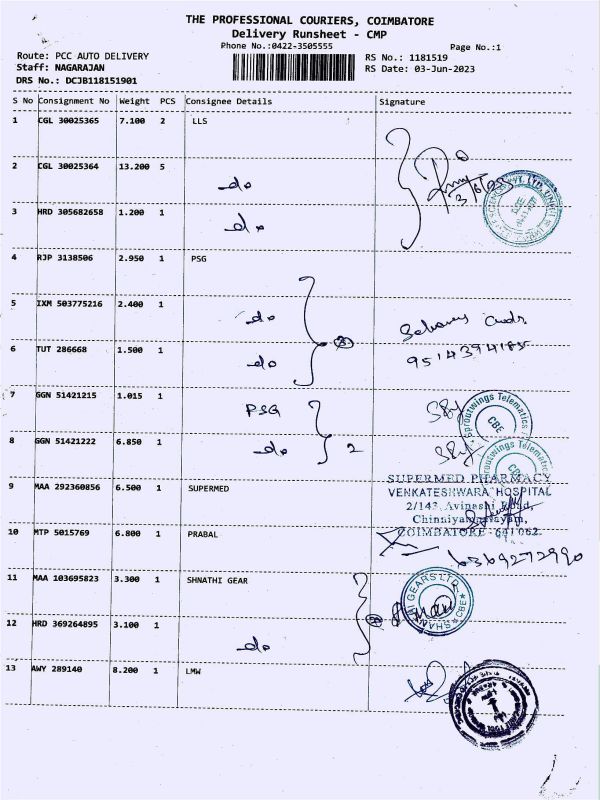 THE PROFESSIONAL COURIERS, COIMBATORE
Delivery Runsheet - CMP
Phone No.:0422-3505555
Page No.:1
Route: PCC AUTO DELIVERY
RS No.: 1181519
Staff: NAGARAJAN
RS Date: 03-Jun-2023
DRS No.: DCJB118151901
S No Consignment No Weight PCS Consignee Details Signature
1 CGL 30025365 7.100 2 LLS
2 CGL 30025364 13.200 5 do
3 HRD 305682658 1.200 1 do
4 RJP 3138506 2.950 1 PSG
5 IXM 503775216 2.400 1 do
6 TUT 286668 1.500 1 do
3
9514394185
7 GGN 51421215 1.015 1 PSG
Sproutwings Telematics
CBE
8 GGN 51421222 6.850 1 do 2
Sproutwings Telematics
CBE
9 MAA 292360856 6.500 1 SUPERMED
SUPERMED PHARMACY
VENKATESHWARA HOSPITAL
2/143, Avinashi Road,
Chinniyampalayam,
COIMBATORE - 641 062
10 MTP 5015769 6.800 1 PRABAL
6369272990
11 MAA 103695823 3.300 1 SHNATHI GEAR
12 HRD 369264895 3.100 1 do
GEARS LTD
CBE
13 AWY 289140 8.200 1 LMW